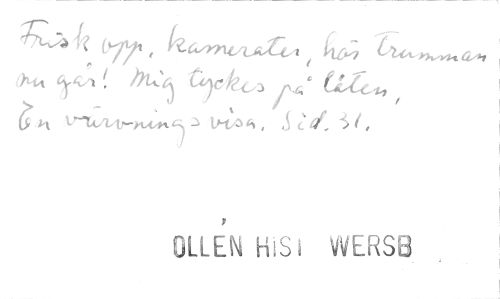 Frisk opp, kamerater, hör trumman
nu går! Mig tyckes på låten,
En värvningsvisa. Sid. 31.
OLLÉN HIST WERSB